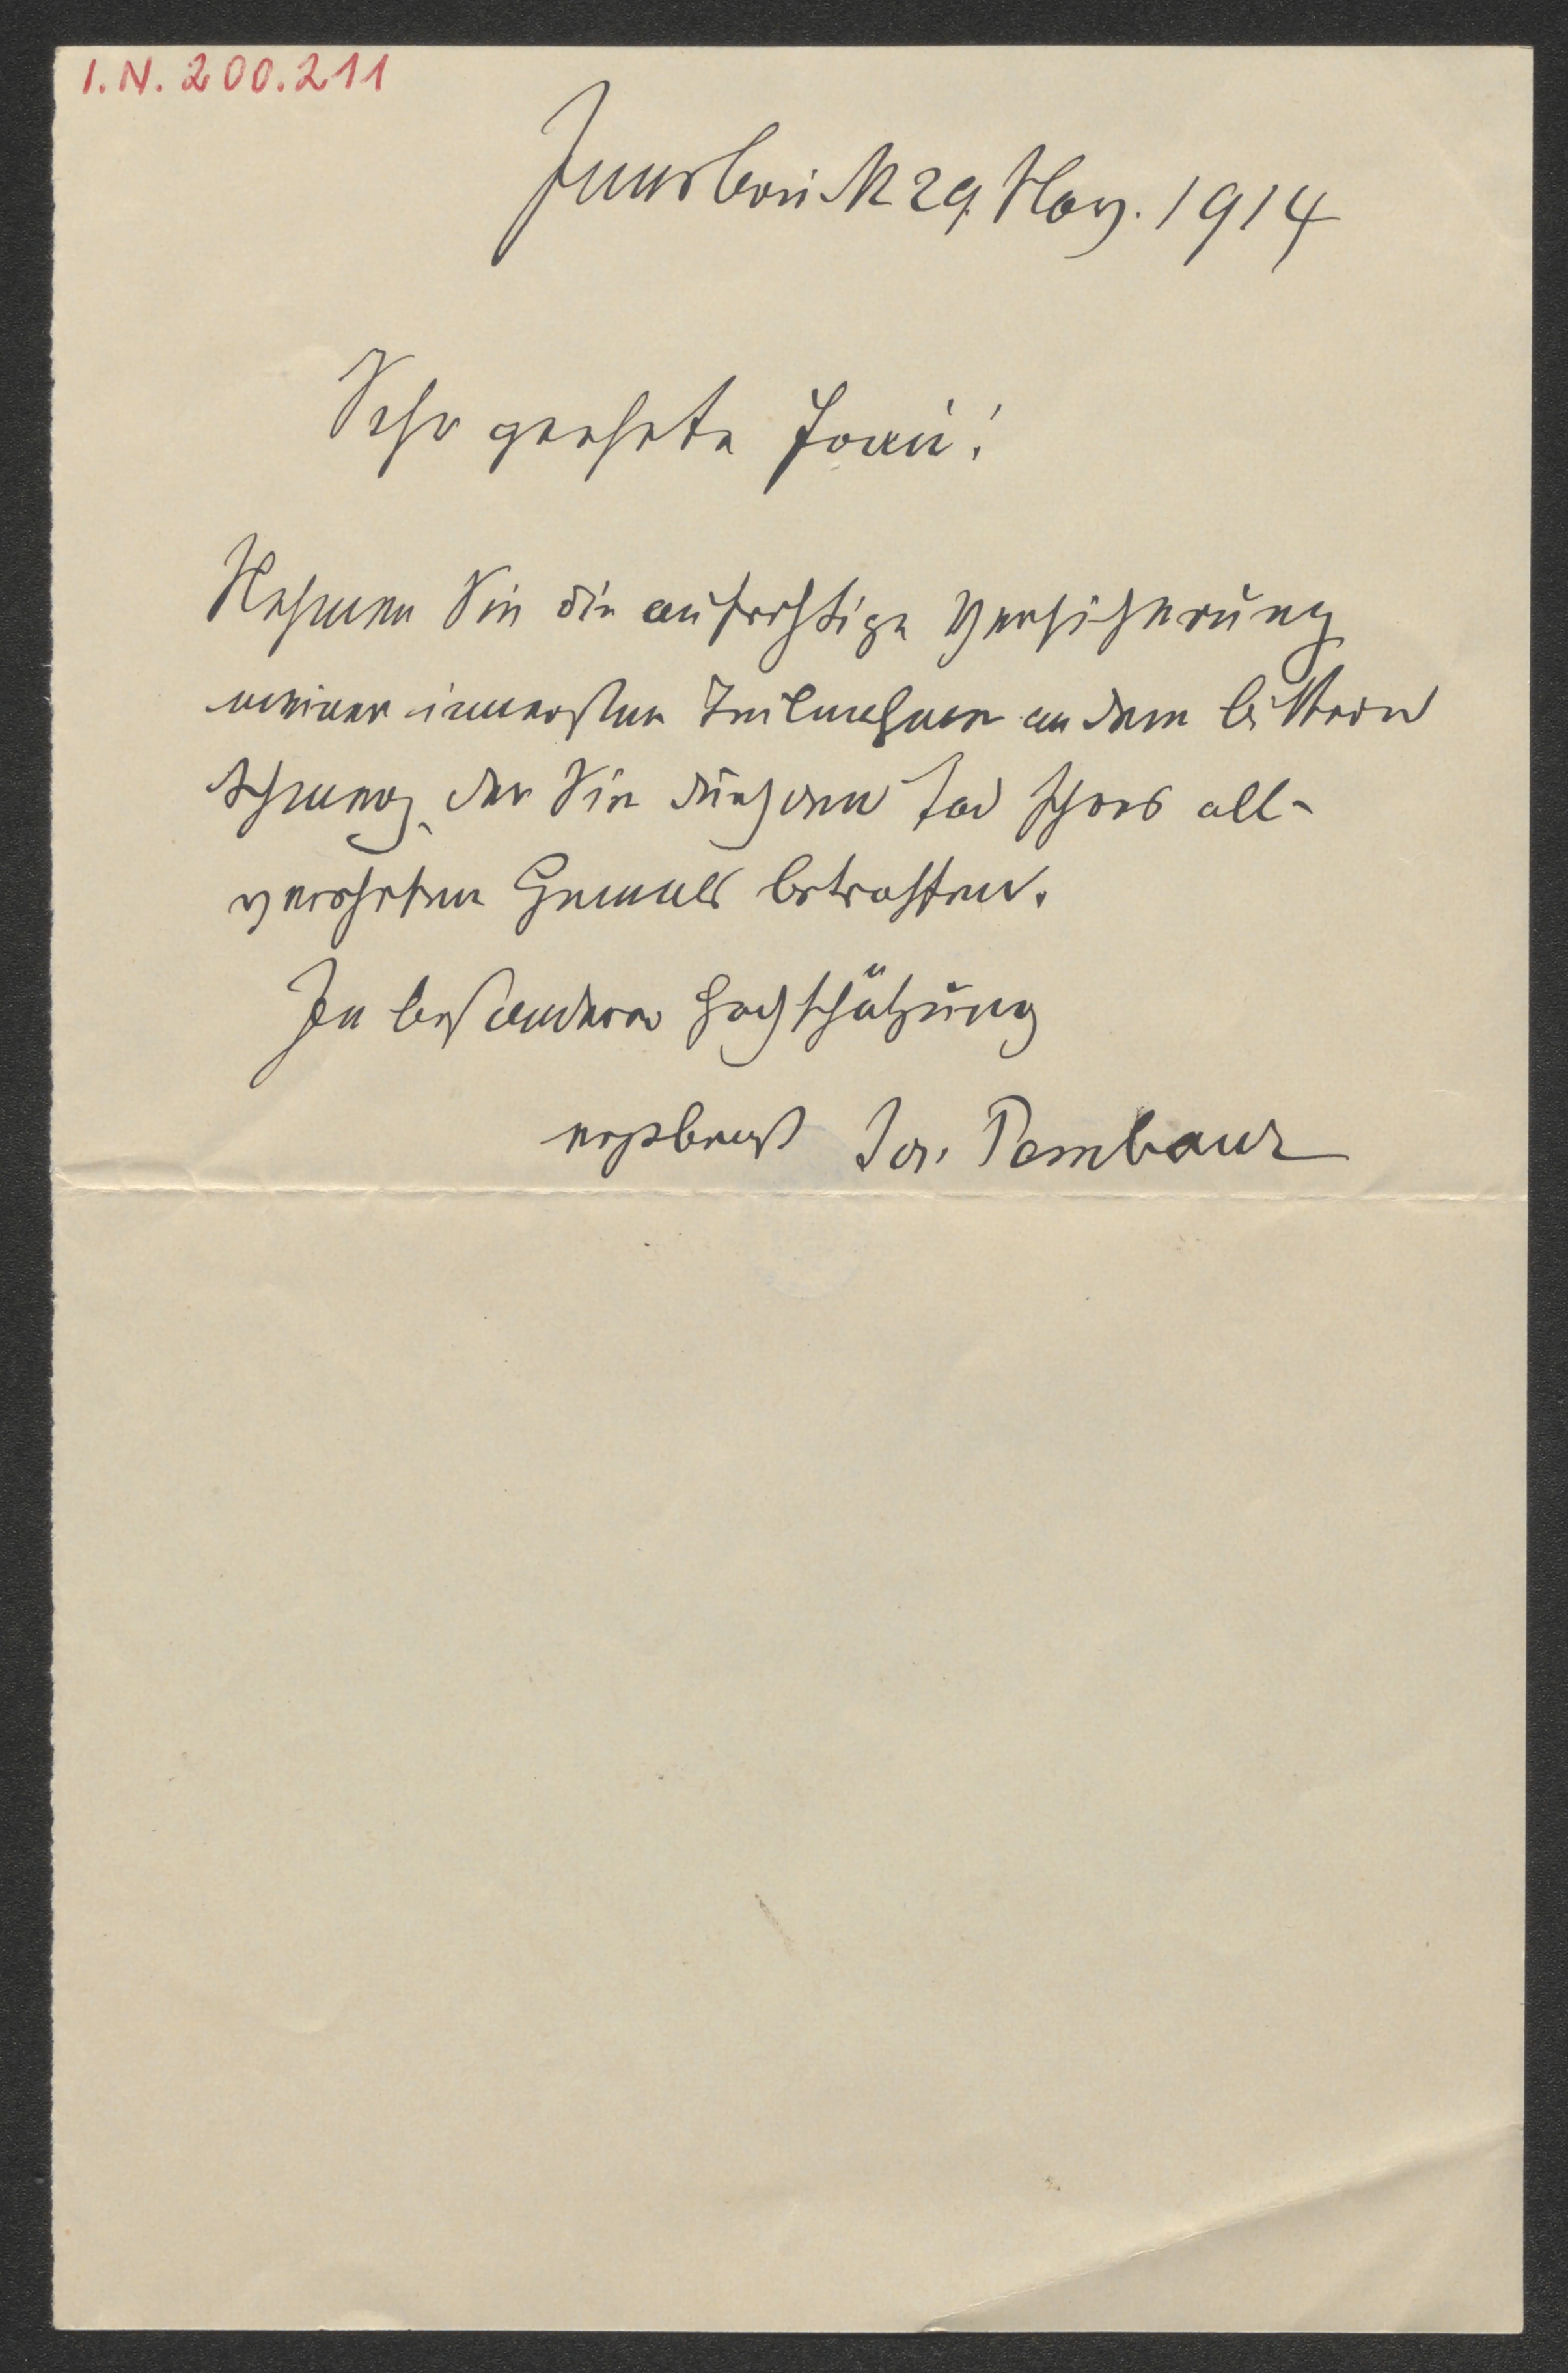 I.N. 200.211
Innsbruck 29. Nov. 1914
Sehr geehrte Frau!
Nehmen Sie die aufrichtige Versicherung
meiner innersten Teilnahme an dem bittern
Schmerz, der Sie durch den Tod Ihres all-
verehrten Gemals betroffen.
In besonderer Hochschätzung
ergebenst Jos. Pembaur